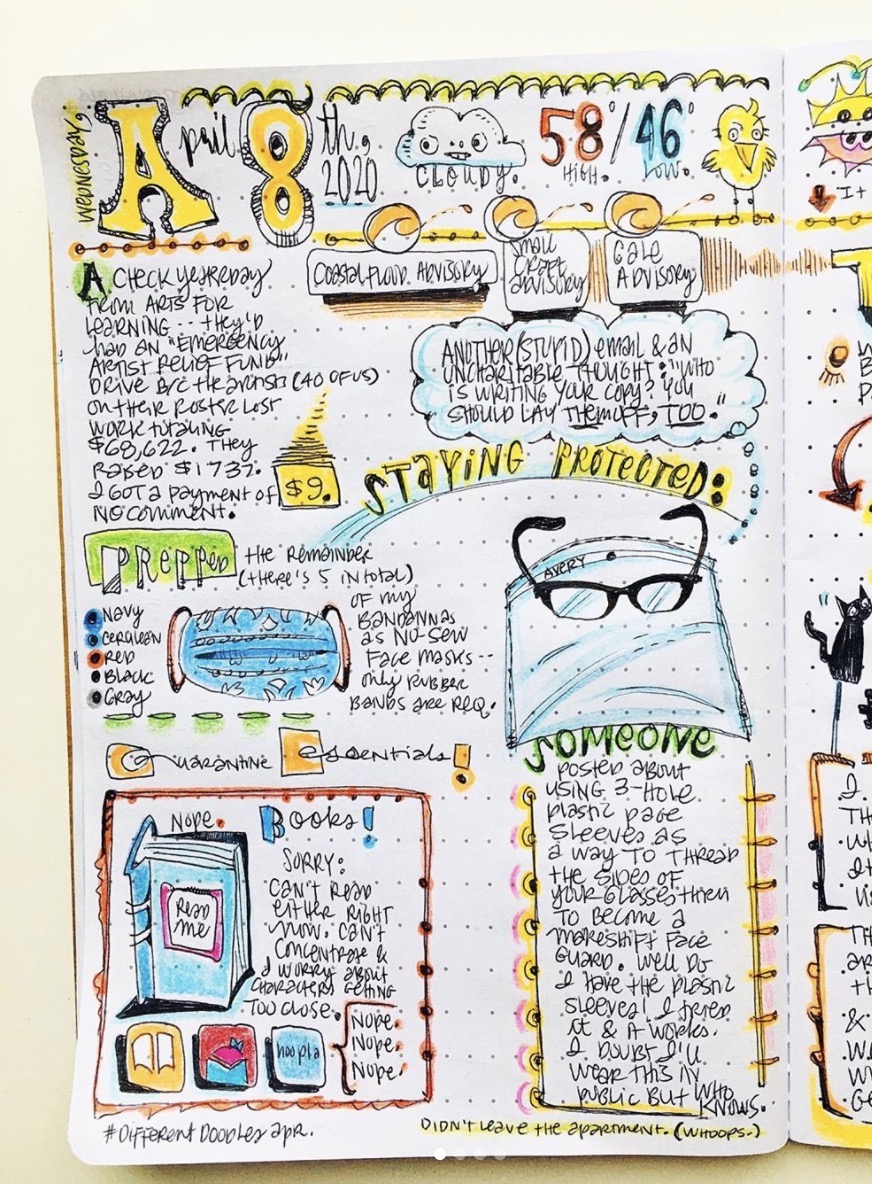 WEDNESDAY,
April 8th, 2020
CLOUDY.
58°/46°
HIGH. LOW.
COASTAL FLOOD ADVISORY
SMALL
CRAFT
ADVISORY
GALE
ADVISORY
A CHECK YESTERDAY
FROM ARTS FOR
LEARNING -- THEY'D
HAD AN "EMERGENCY
ARTIST RELIEF FUND"
DRIVE B/C THE ARTISTS (40 OF US)
ON THEIR ROSTER LOST
WORK TOTALING
$68,622. THEY
RAISED $1737.
I GOT A PAYMENT OF
NO COMMENT.
$9.
ANOTHER (STUPID) EMAIL & AN
UNCHARITABLE THOUGHT: "WHO
IS WRITING YOUR COPY? YOU
SHOULD LAY THEM OFF, TOO."
STAYING PROTECTED:
PREPPED THE REMAINDER
(THERE'S 5 IN TOTAL)
OF MY
BANDANNAS
AS NO-SEW
FACE MASKS --
ONLY RUBBER
BANDS ARE REQ.
NAVY
CERULEAN
RED
BLACK
GRAY
AVERY
SOMEONE
POSTED ABOUT
USING 3-HOLE
PLASTIC PAGE
SLEEVES AS
A WAY TO THREAD
THE SIDES OF
YOUR GLASSES THEN
TO BECOME A
MAKESHIFT FACE
GUARD. WELL DO
I HAVE THE PLASTIC
SLEEVES! I TRIED
IT & IT WORKS.
I DOUBT I'LL
WEAR THIS IN
PUBLIC BUT WHO
KNOWS.
QUARANTINE ESSENTIALS!
NOPE. BOOKS!
READ
ME
SORRY:
CAN'T READ
EITHER RIGHT
NOW. CAN'T
CONCENTRATE &
I WORRY ABOUT
CHARACTERS GETTING
TOO CLOSE.
hoopla
NOPE.
NOPE.
NOPE.
#DIFFERENTDOODLESAPR.
DIDN'T LEAVE THE APARTMENT. (WHOOPS.)